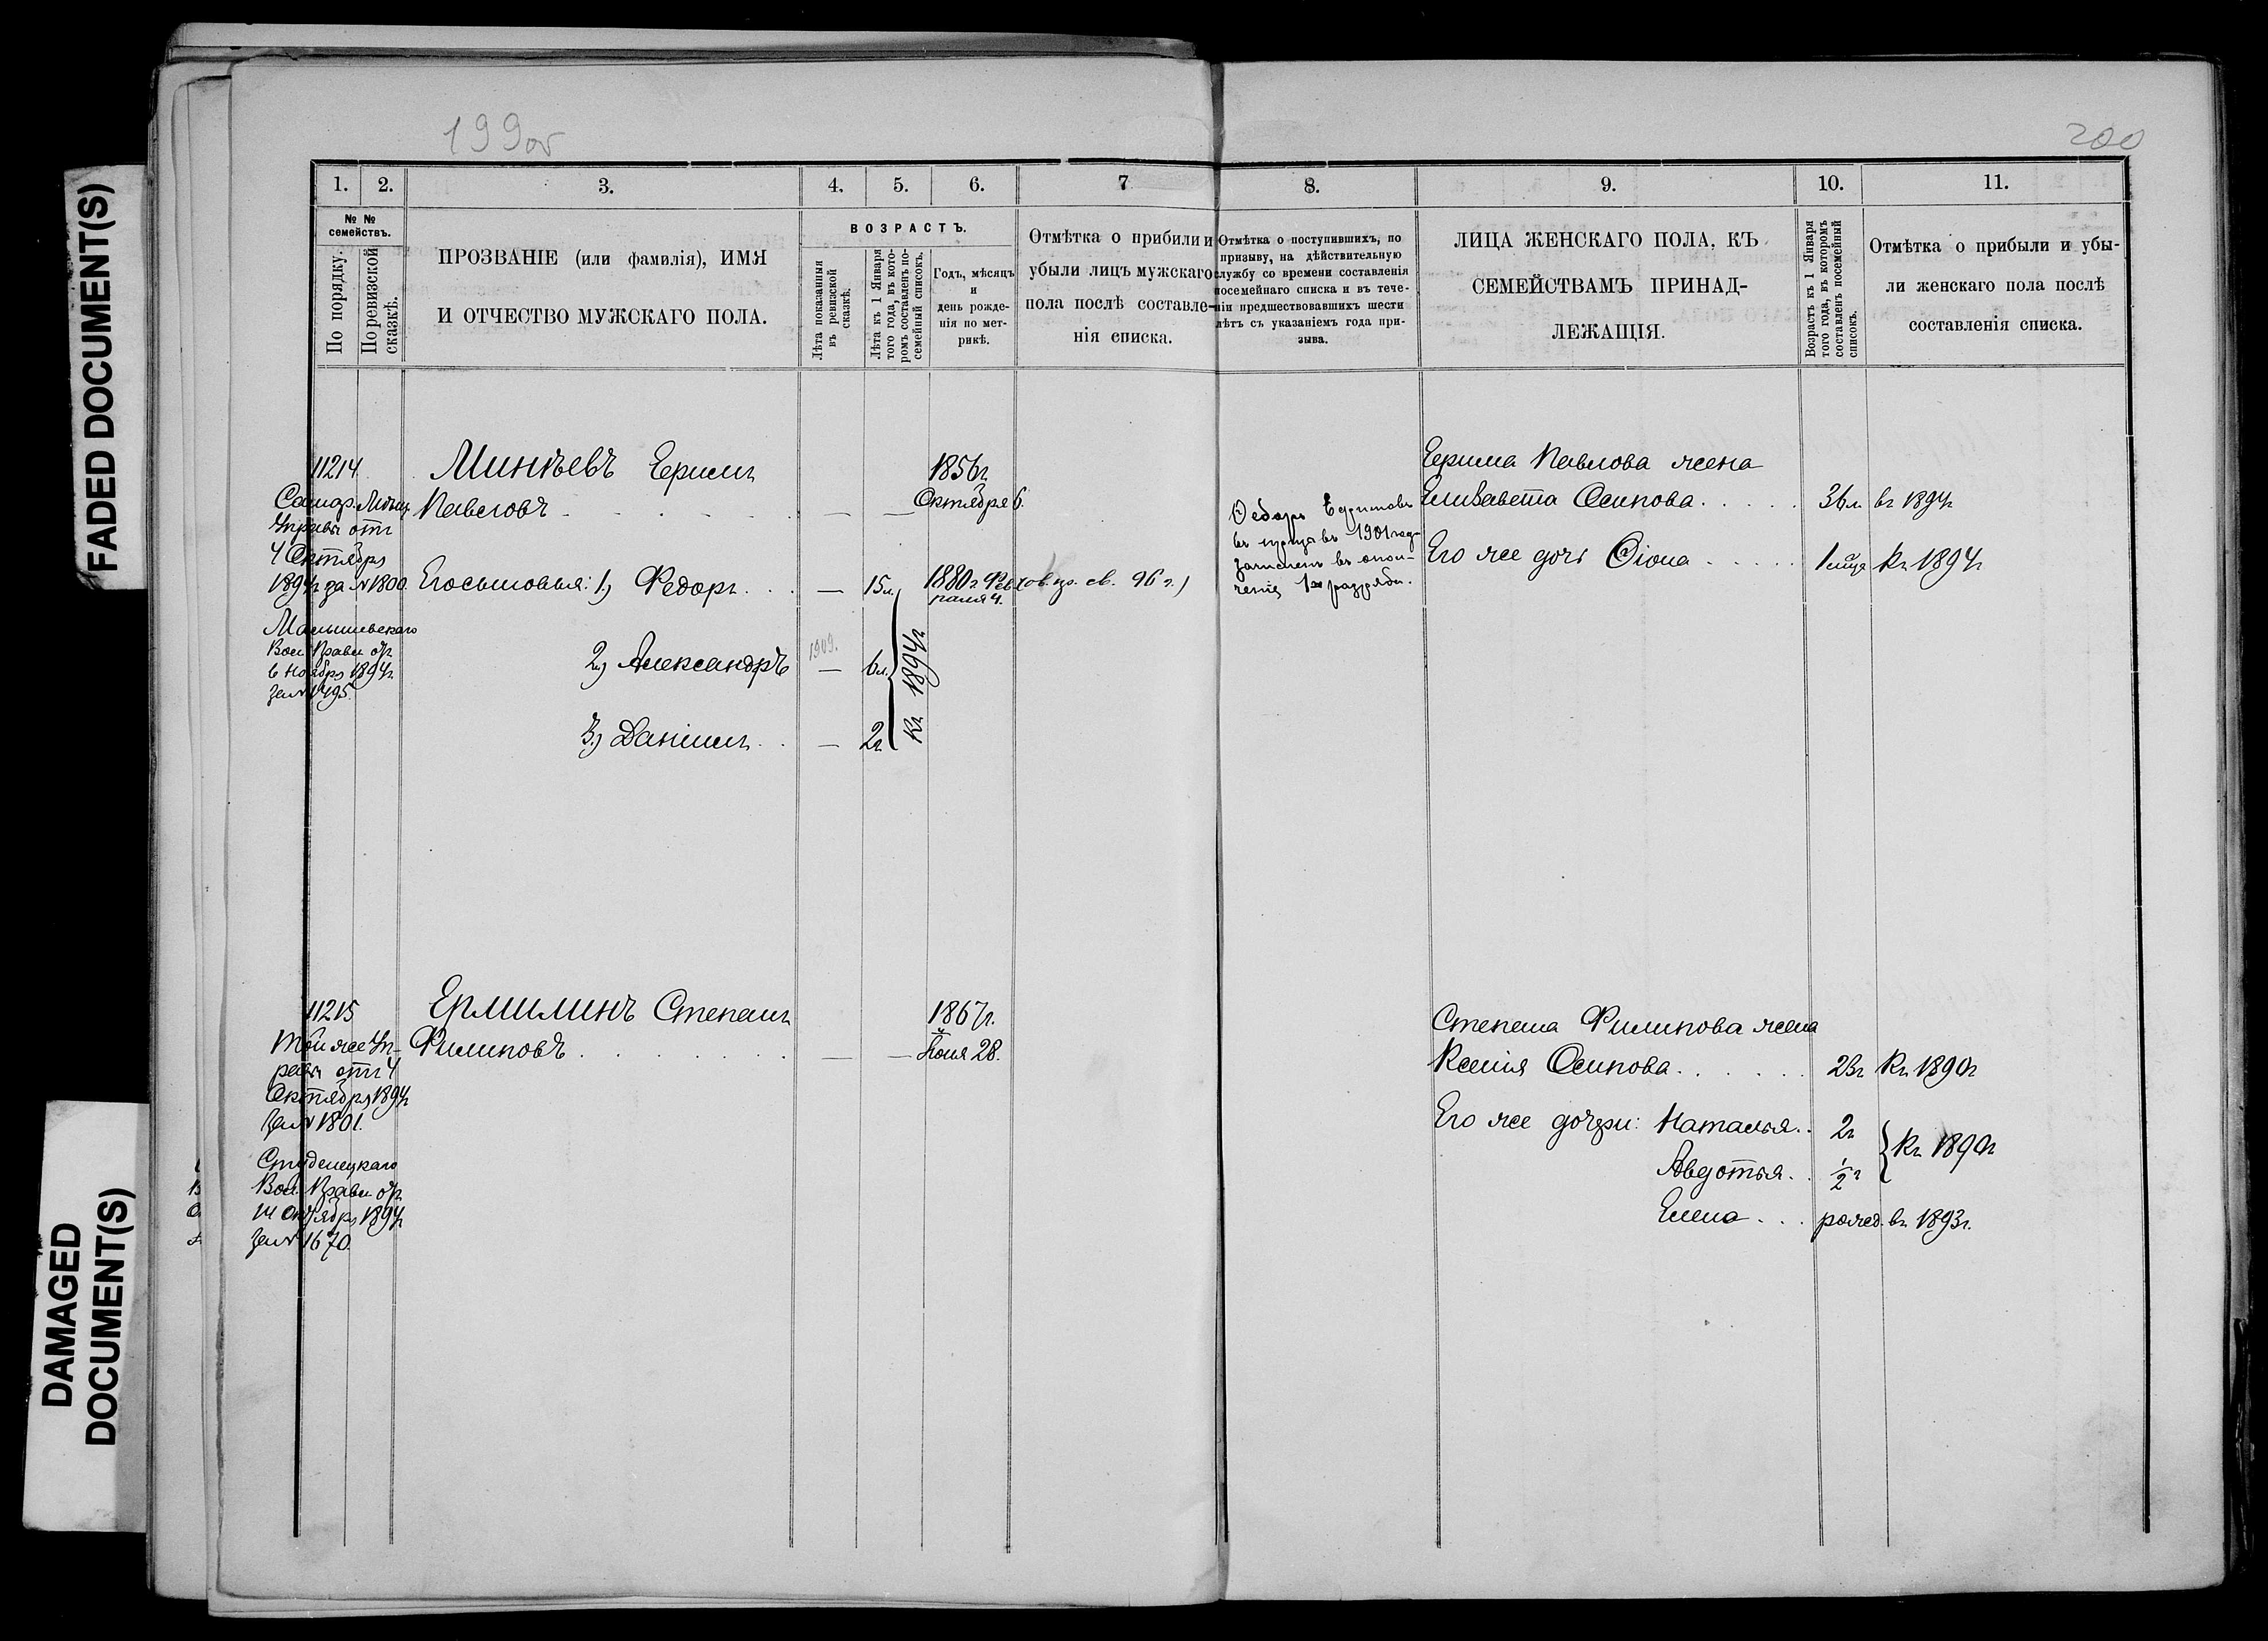 FADED DOCUMENT(S)
DAMAGED
DOCUMENT(S)
199об
200
1.
2.
3.
4.
5.
6.
7
8.
9.
10.
11.
№ №
семействъ.
По порядку.
По ревизской
сказкѣ.
ПРОЗВАНІЕ (или фамилія), ИМЯ
И ОТЧЕСТВО МУЖСКАГО ПОЛА.
ВОЗРАСТЪ.
Лѣта показанныя
въ ревизской
сказкѣ.
Лѣта къ 1 Января
того года, въ кото-
ромъ составленъ по-
семейный списокъ.
Годъ, мѣсяцъ
и
день рожде-
нія по мет-
рикѣ.
Отмѣтка о прибыли и
убыли лицъ мужскаго
пола послѣ составле-
нія списка.
Отмѣтка о поступившихъ, по
призыву, на дѣйствительную
службу со времени составленія
посемейнаго списка и въ тече-
ніи предшествовавшихъ шести
лѣтъ съ указаніемъ года при-
зыва.
ЛИЦА ЖЕНСКАГО ПОЛА, КЪ
СЕМЕЙСТВАМЪ ПРИНАД-
ЛЕЖАЩІЯ.
Возрастъ къ 1 Января
того года, въ которомъ
составленъ посемейный
списокъ.
Отмѣтка о прибыли и убы-
ли женскаго пола послѣ
составленія списка.
11214
Самар. Мѣщ.
Управы отъ
4 Октября
1894г за № 1800.
Малышевскаго
Вол. Правл. отъ
6 Ноября 1894г
за № 1495.
Минѣевъ Ефимъ
Павловъ
1856г
Октября 6.
Его сыновья: 1.) Федоръ . . .
— 15л.
1880г Фев
раля 4.
(ов. по. св. 96 г.)
2.) Александръ
1909.
— 6л.
3.) Даніилъ . .
— 2г
Къ 1894г
Федоръ Ефимовъ
въ призывъ 1901 года
зачисленъ въ опол-
ченіе 1го разряда.
Ефима Павлова жена
Елизавета Осипова . . . . .
36л. въ 1894г
Его же дочь Фіона . . . . .
1 мѣсяцъ Къ 1894г
11215
Той же Уп-
равы отъ 4
Октября 1894г
за № 1801.
Студенецкаго
Вол. Правл. отъ
14 Октября 1894г
за № 1670.
Ермилинъ Степанъ
Филиповъ . . . . . . .
1867г.
Іюля 28.
Степана Филипова жена
Ксенія Осипова . . . . . .
23г Къ 1890г
Его же дочери: Наталья . .
2г
Авдотья . .
½ г
{ Къ 1890г
Елена . . .
рожд. въ 1893г.